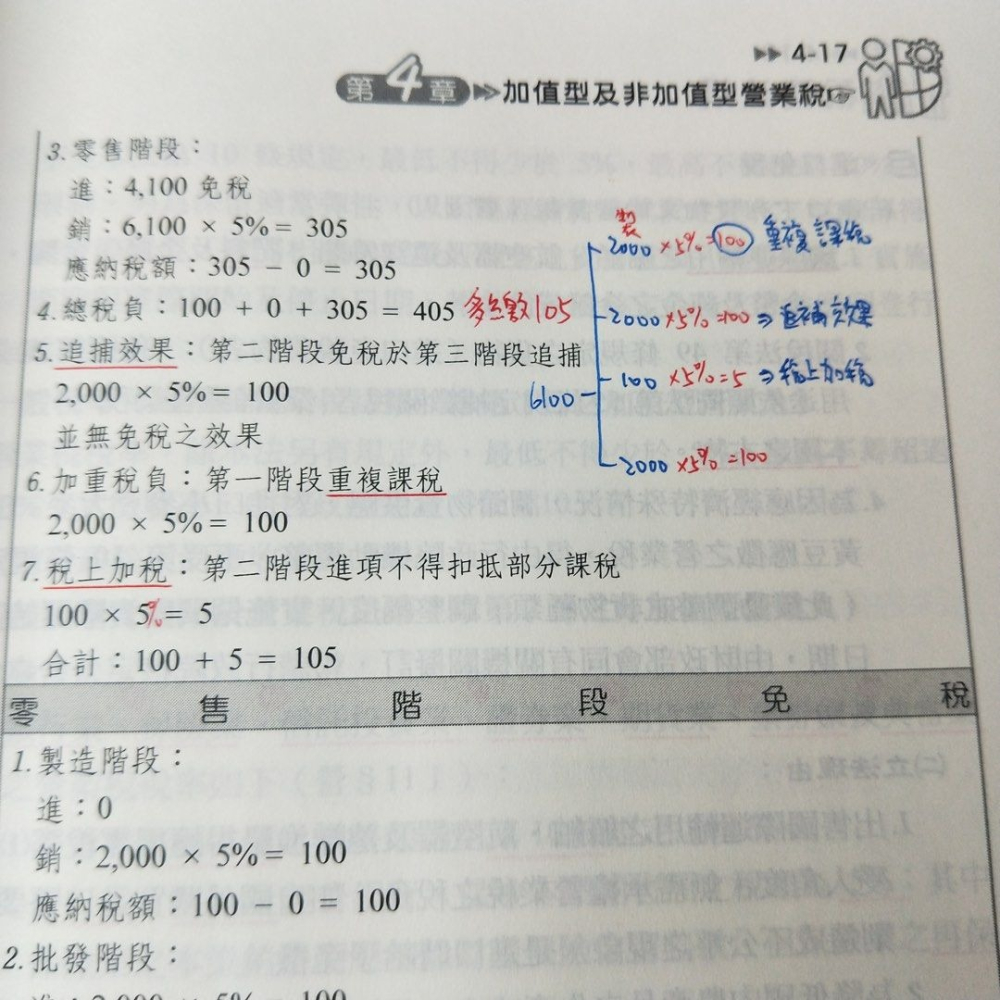 ▶▶ 4-17
第4章 ▶▶ 加值型及非加值型營業稅
3.零售階段：
進：4,100 免稅
銷：6,100 × 5%= 305
應納稅額：305 − 0 = 305
4.總稅負：100 + 0 + 305 = 405 多繳105
5.追捕效果：第二階段免稅於第三階段追捕
2,000 × 5%= 100
並無免稅之效果
6.加重稅負：第一階段重複課稅
2,000 × 5%= 100
7.稅上加稅：第二階段進項不得扣抵部分課稅
100 × 5%= 5
合計：100 + 5 = 105
製
2000 ×5%=100 重複課稅
2000 ×5%=100 ⇒追補效果
100 ×5%=5 ⇒稅上加稅
6100
2000 ×5%=100
零售階段免稅
1.製造階段：
進：0
銷：2,000 × 5%= 100
應納稅額：100 − 0 = 100
2.批發階段：